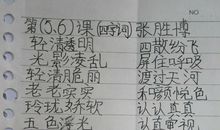 NO
第(5.6)课(四字词) 张胜博
轻清透明 四散纷飞
光影凌乱 屏住呼吸
轻清脆丽 渡过天河
老老实实 和颜悦色
玲珑娇软 认认真真
五色浮光